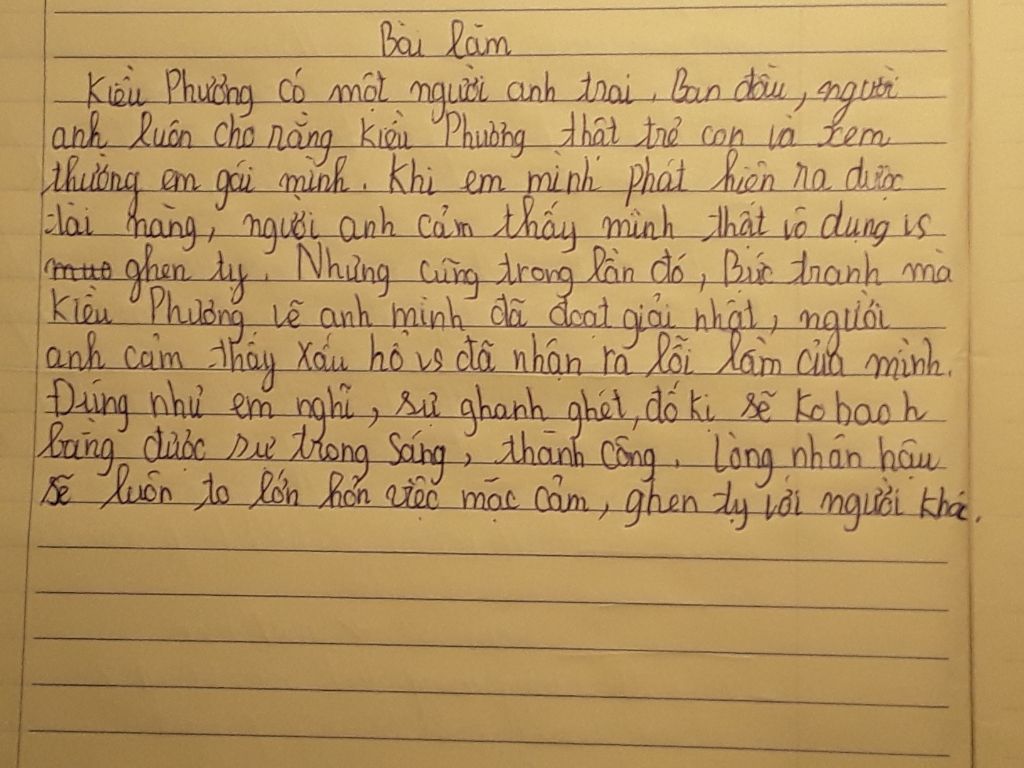 Bài làm
Kiều Phương có một người anh trai. Ban đầu, người
anh luôn cho rằng Kiều Phương thật trẻ con và xem
thường em gái mình. Khi em mình phát hiện ra được
tài năng, người anh cảm thấy mình thất vô dụng vs
ghen tỵ. Nhưng cũng trong lần đó, Bức tranh mà
Kiều Phương vẽ anh mình đã đoạt giải nhất, người
anh cảm thấy xấu hổ vs đã nhận ra lỗi lầm của mình.
Đúng như em nghĩ, sự ghanh ghét, đố kị sẽ ko bao h
bằng được sự trong sáng, thành công. Lòng nhân hậu
sẽ luôn to lớn hơn việc mặc cảm, ghen tỵ với người khác.